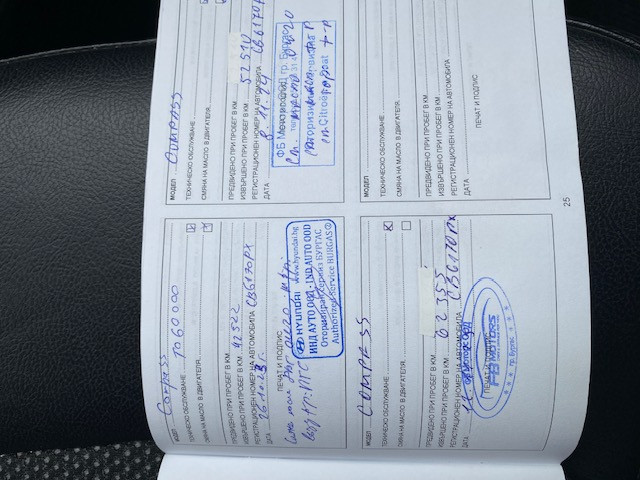 МОДЕЛ Compass
ТЕХНИЧЕСКО ОБСЛУЖВАНЕ TO 60000
СМЯНА НА МАСЛО В ДВИГАТЕЛЯ
ПРЕДВИДЕНО ПРИ ПРОБЕГ В КМ
ИЗВЪРШЕНО ПРИ ПРОБЕГ В КМ 42522
РЕГИСТРАЦИОНЕН НОМЕР НА АВТОМОБИЛА CB6170PX
ДАТА 26.10.23г.
ПЕЧАТ И ПОДПИС
HYUNDAI www.hyundai.bg
ИНД АУТО ООД - IND AUTO OOD
Оторизиран сервиз БУРГАС
Authorized Service BURGAS
МОДЕЛ COMPASS
ТЕХНИЧЕСКО ОБСЛУЖВАНЕ
СМЯНА НА МАСЛО В ДВИГАТЕЛЯ
ПРЕДВИДЕНО ПРИ ПРОБЕГ В КМ
ИЗВЪРШЕНО ПРИ ПРОБЕГ В КМ 52510
РЕГИСТРАЦИОНЕН НОМЕР НА АВТОМОБИЛА CB6170PX
ДАТА 8.11.24
гр. Бургас
Citroen
МОДЕЛ COMPASS
ТЕХНИЧЕСКО ОБСЛУЖВАНЕ
СМЯНА НА МАСЛО В ДВИГАТЕЛЯ
ПРЕДВИДЕНО ПРИ ПРОБЕГ В КМ
ИЗВЪРШЕНО ПРИ ПРОБЕГ В КМ 62355
РЕГИСТРАЦИОНЕН НОМЕР НА АВТОМОБИЛА CB6170PX
ДАТА
ПЕЧАТ И ПОДПИС
FB MOTORS
гр. Бургас
МОДЕЛ
ТЕХНИЧЕСКО ОБСЛУЖВАНЕ
СМЯНА НА МАСЛО В ДВИГАТЕЛЯ
ПРЕДВИДЕНО ПРИ ПРОБЕГ В КМ
ИЗВЪРШЕНО ПРИ ПРОБЕГ В КМ
РЕГИСТРАЦИОНЕН НОМЕР НА АВТОМОБИЛА
ДАТА
ПЕЧАТ И ПОДПИС
25